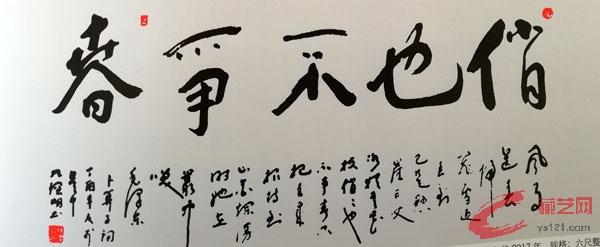 俏也不爭春
风雨
送春
归
飞雪迎
春到
已是悬
崖百丈
冰犹有花
枝俏俏也
不争春只
把春来
报待到
山花烂漫
时她在
丛中
笑
毛泽东
卜算子词
丁酉年
藏艺网
ys121.com
2017年 规格：六尺整